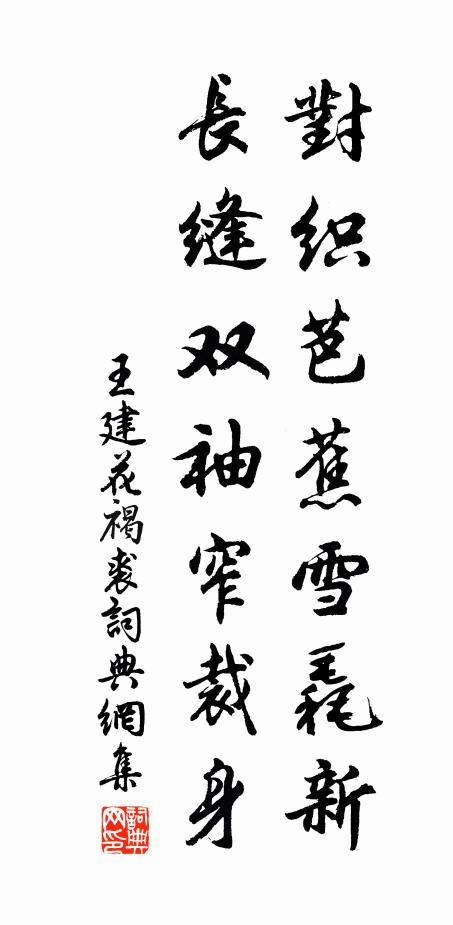 對织芭蕉雪毳新
長缝双袖窄裁身
王建花褐裘詞典網集
詞典网印